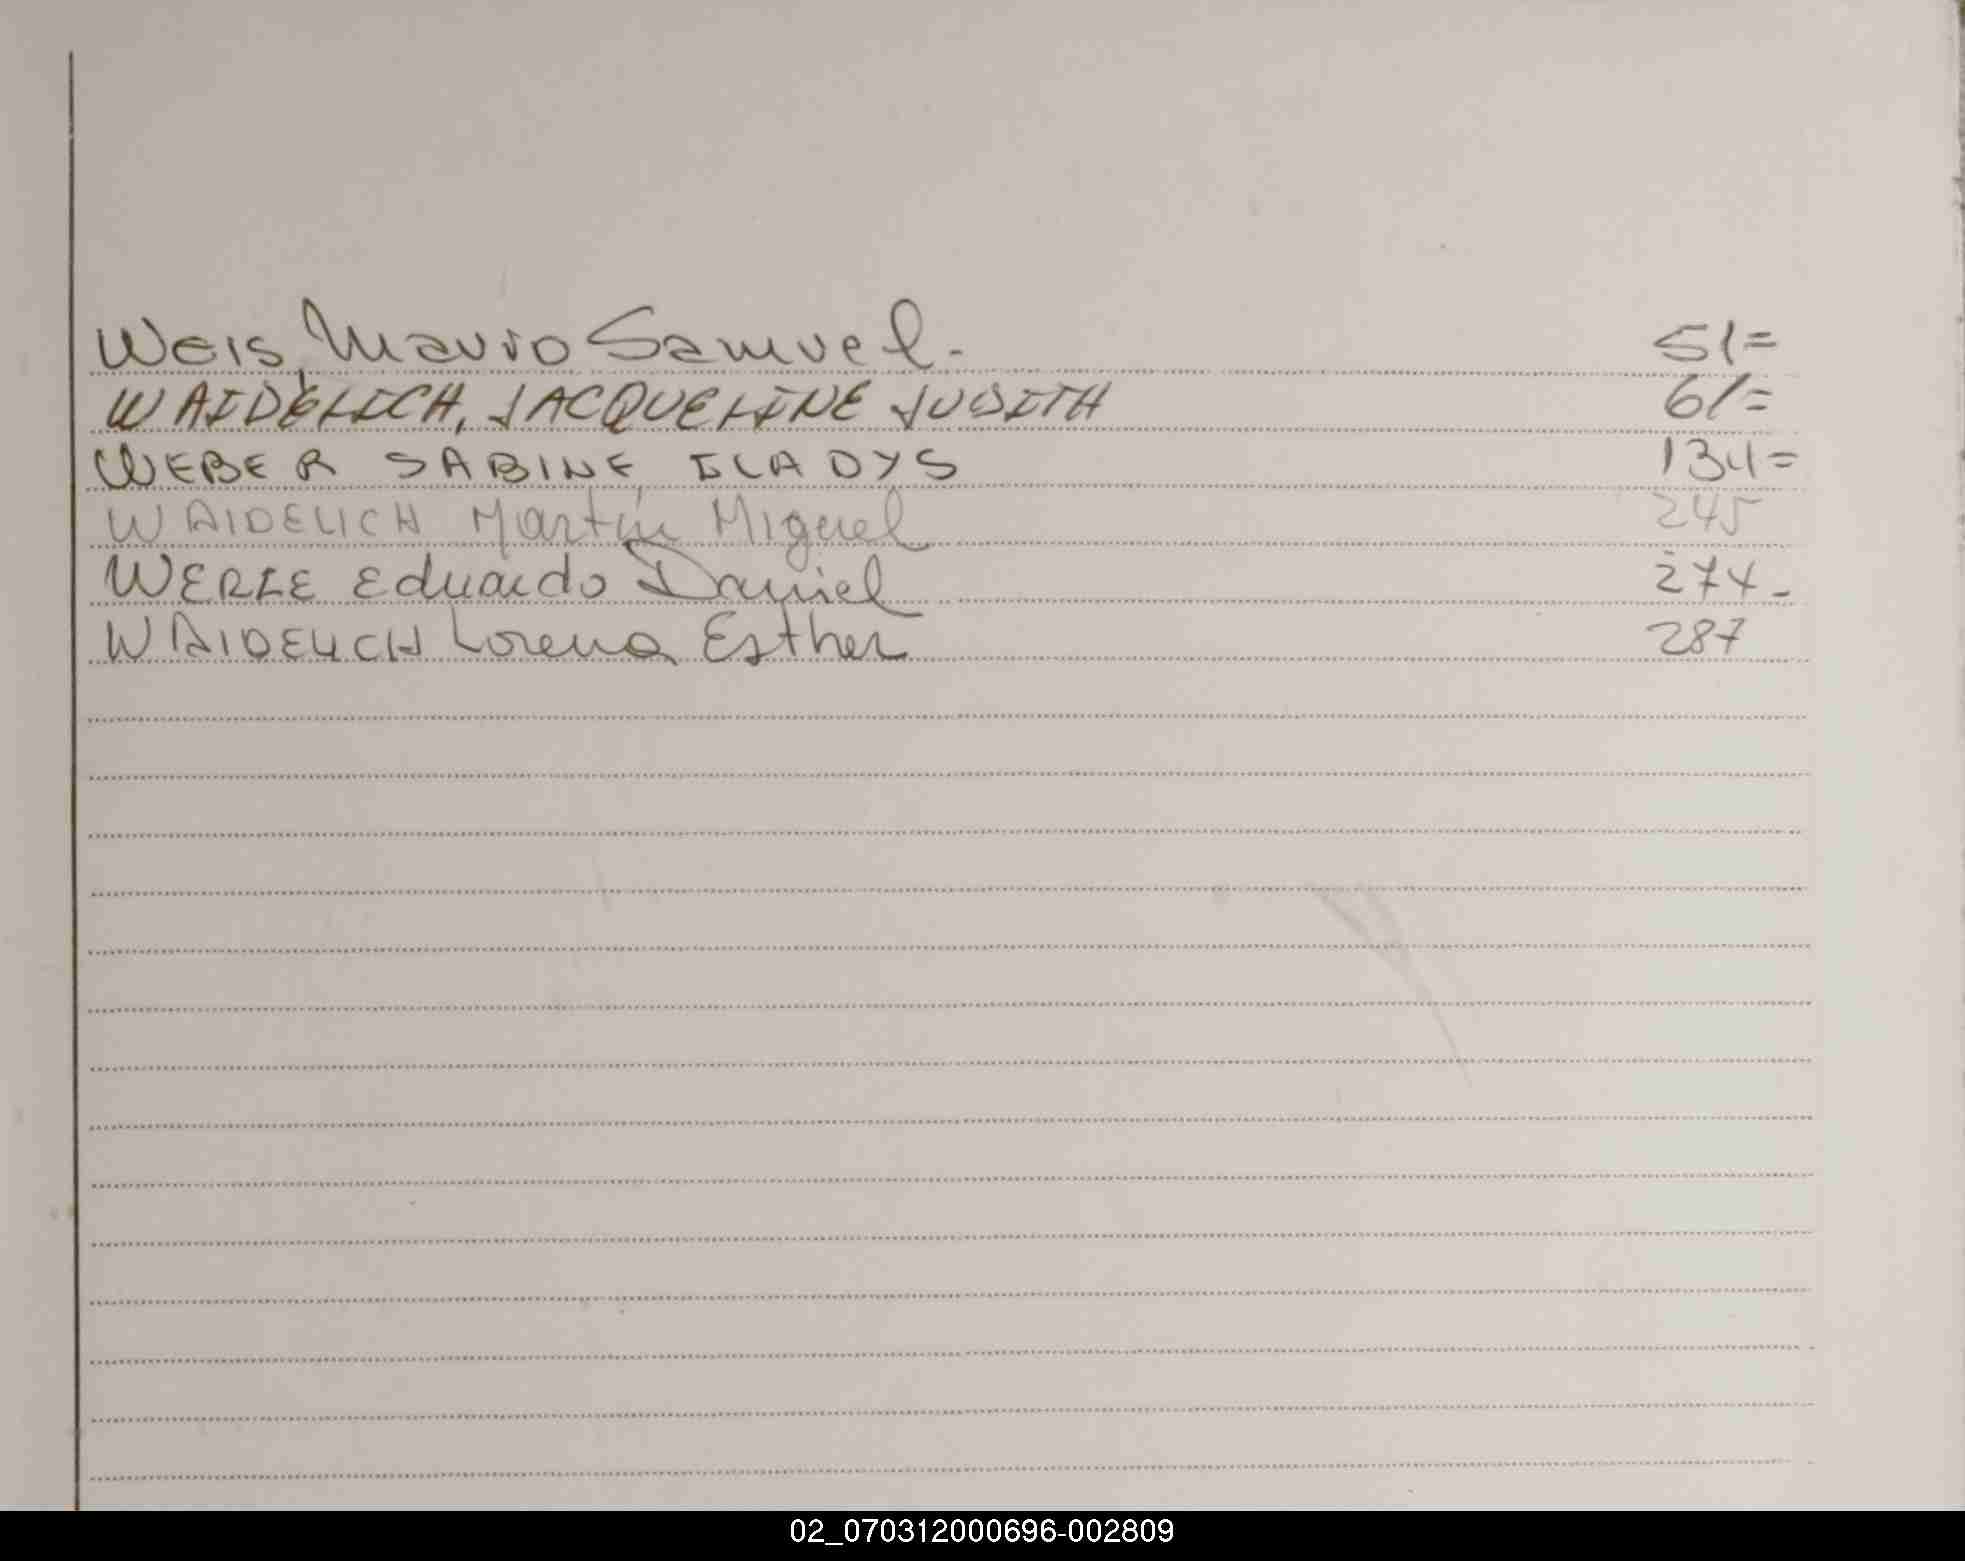 Weis, Mauro Samuel.- 51=
WAIDELICH, JACQUELINE JUDITH 61=
WEBER SABINE GLADYS 134=
WAIDELICH Martín Miguel 245
WERLE Eduardo Daniel 274-
WAIDELICH Lorena Esther 287
02_070312000696-002809